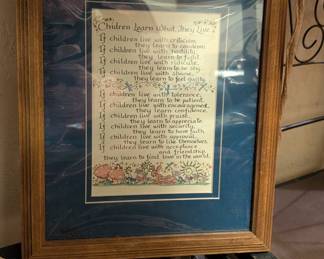 Children Learn What They Live
If children live with criticism,
they learn to condemn.
If children live with hostility,
they learn to fight.
If children live with ridicule,
they learn to be shy.
If children live with shame,
they learn to feel guilty.
If children live with tolerance,
they learn to be patient.
If children live with encouragement,
they learn confidence.
If children live with praise,
they learn to appreciate.
If children live with security,
they learn to have faith.
If children live with approval,
they learn to like themselves.
If children live with acceptance
and friendship,
they learn to find love in the world.